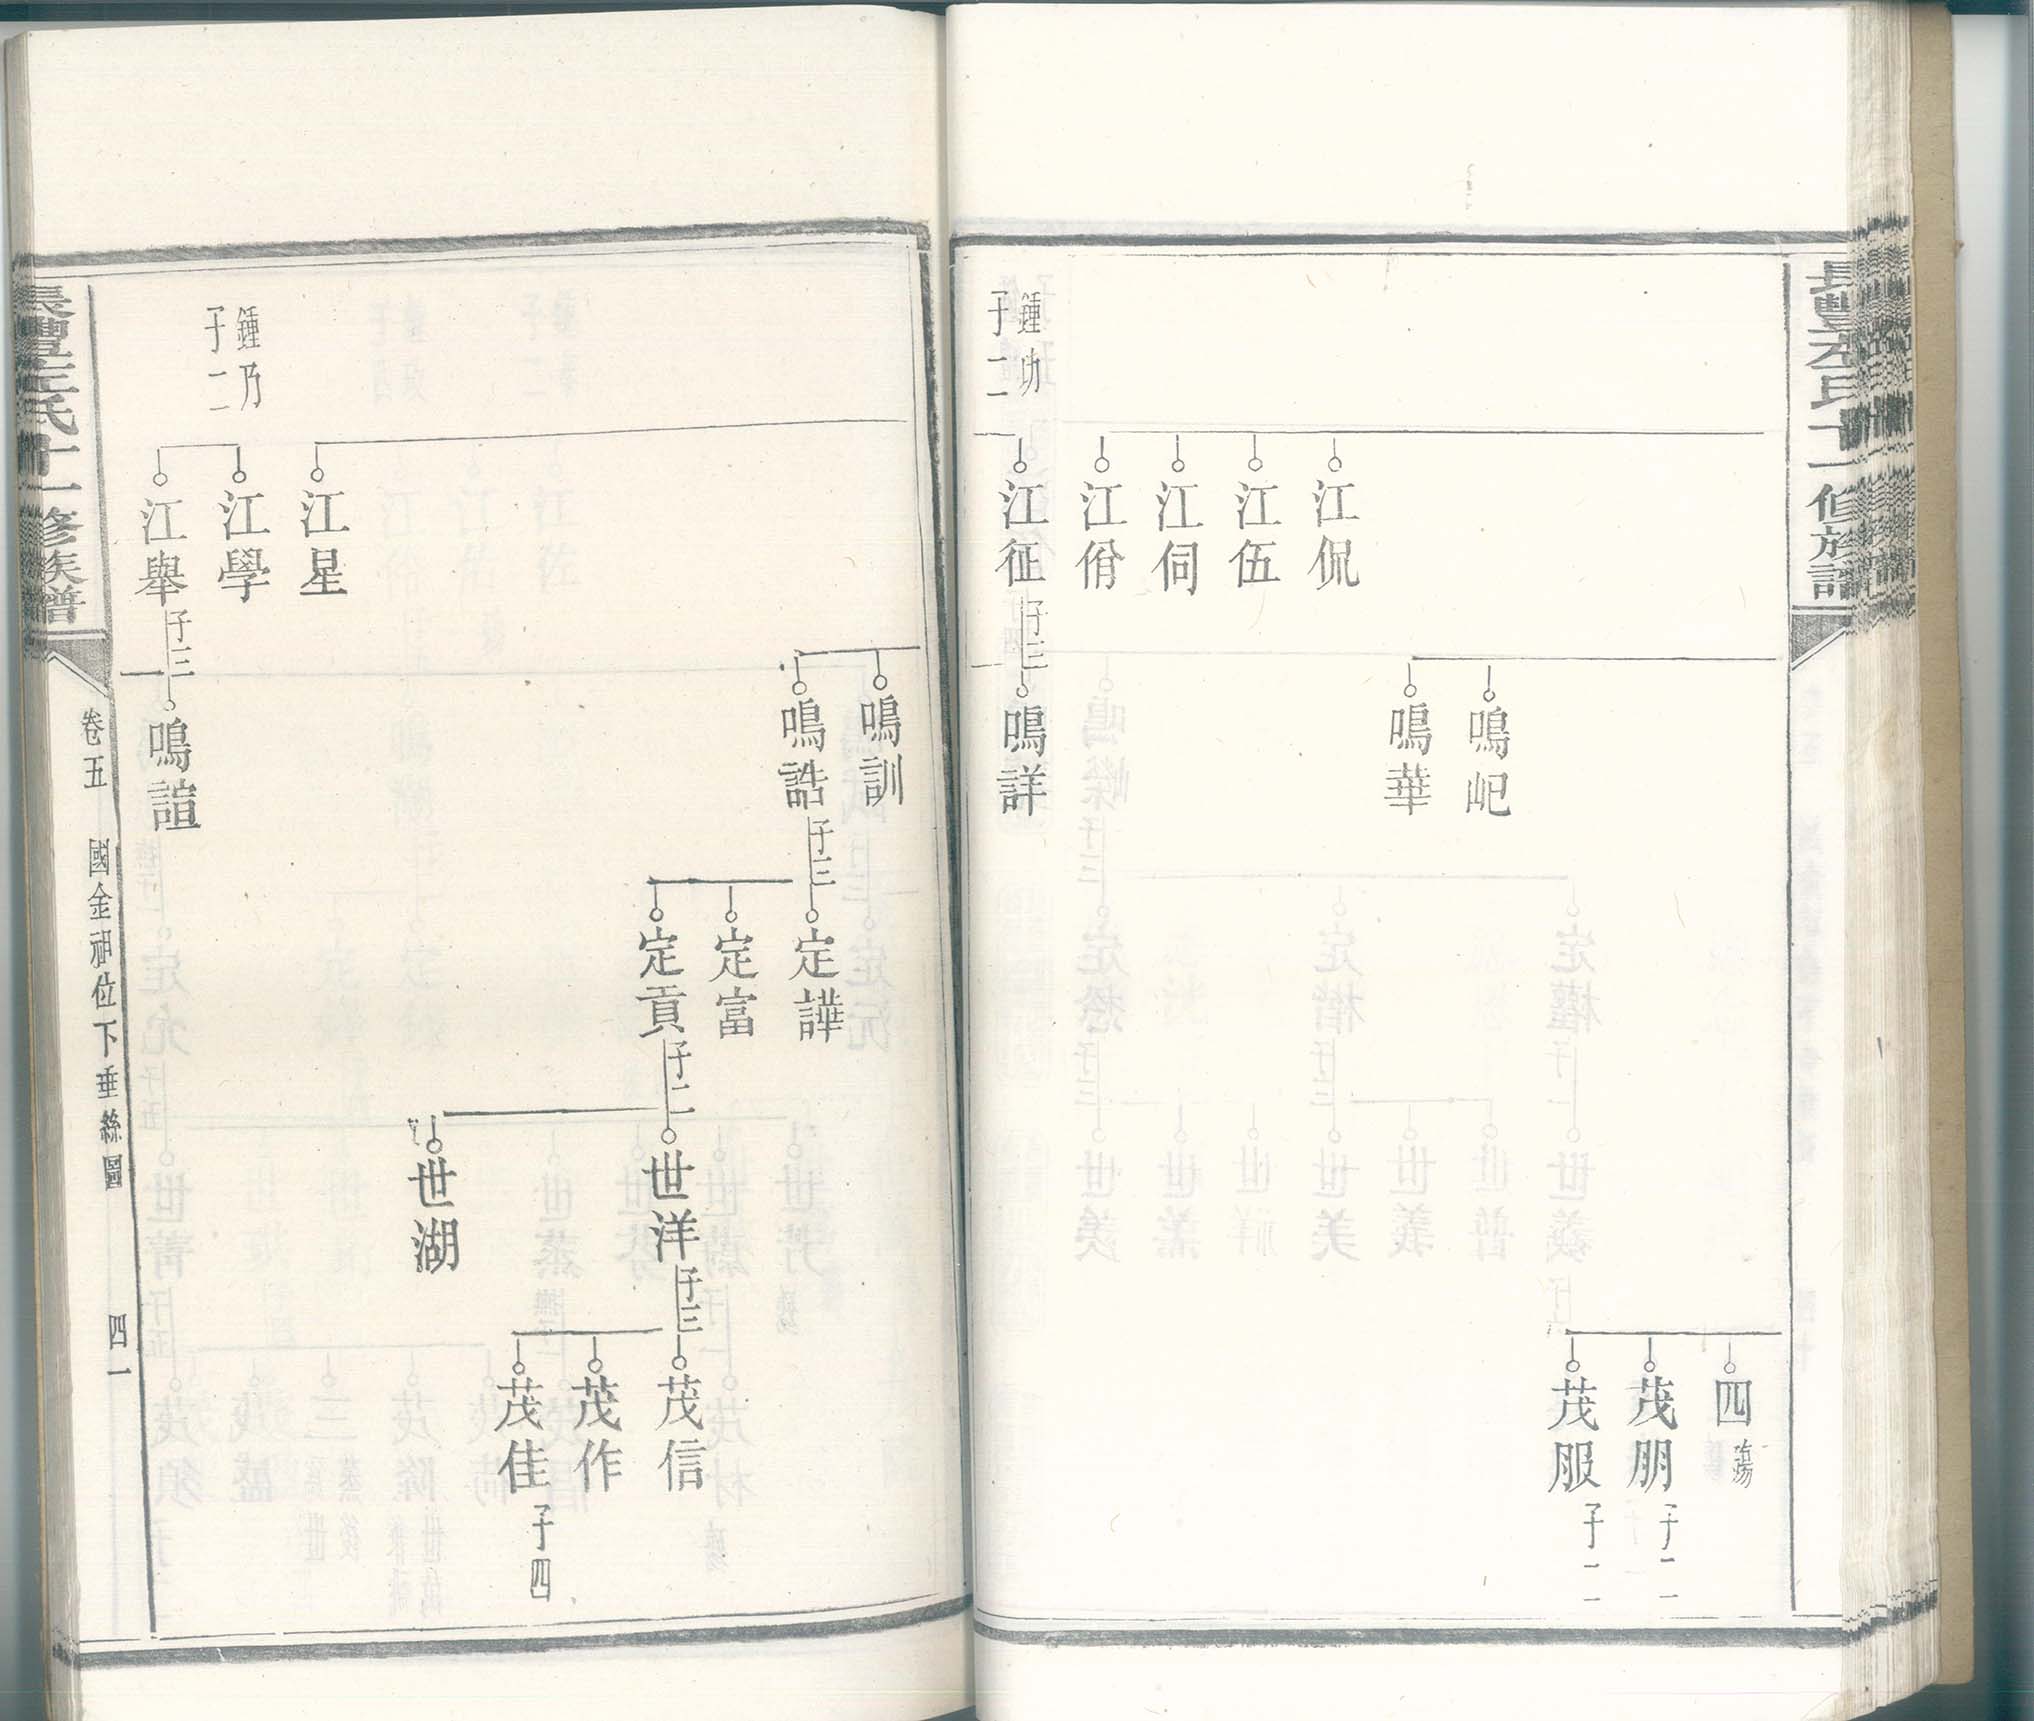 長豐左氏十一修族譜
四殤
茂朋子二
茂服子二
鳴屺
鳴華
江侃
江伍
江伺
江佾
鍾功
子二
江征子三
鳴詳
鳴訓
鳴誥子三
定譁
定富
定貢子二
世洋子三
世湖
茂信
茂作
茂佳子四
江星
鍾乃
子二
江學
江舉子三
鳴諠
長豐左氏十一修族譜
卷五
國金祖位下垂絲圖
四一